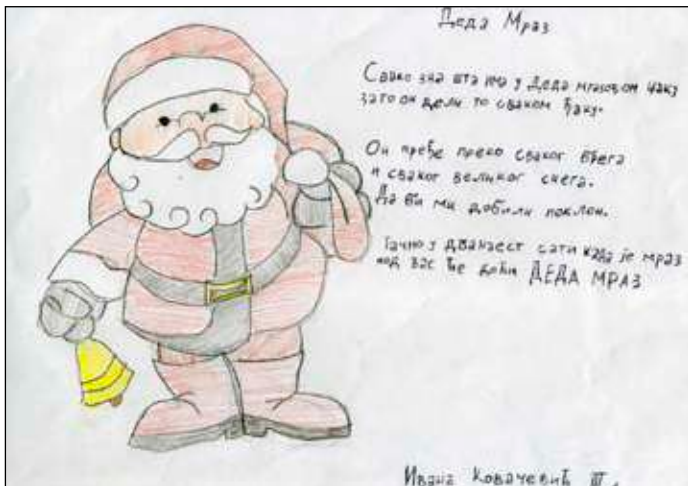 Деда Мраз
Свако зна шта има у Деда мразовом џаку
зато он дели то сваком ђаку.
Он пређе преко сваког брега
и сваког великог снега.
Да би ми добили поклон.
Тачно у дванаест сати када је мраз
код вас ће доћи ДЕДА МРАЗ
Ивана Ковачевић III